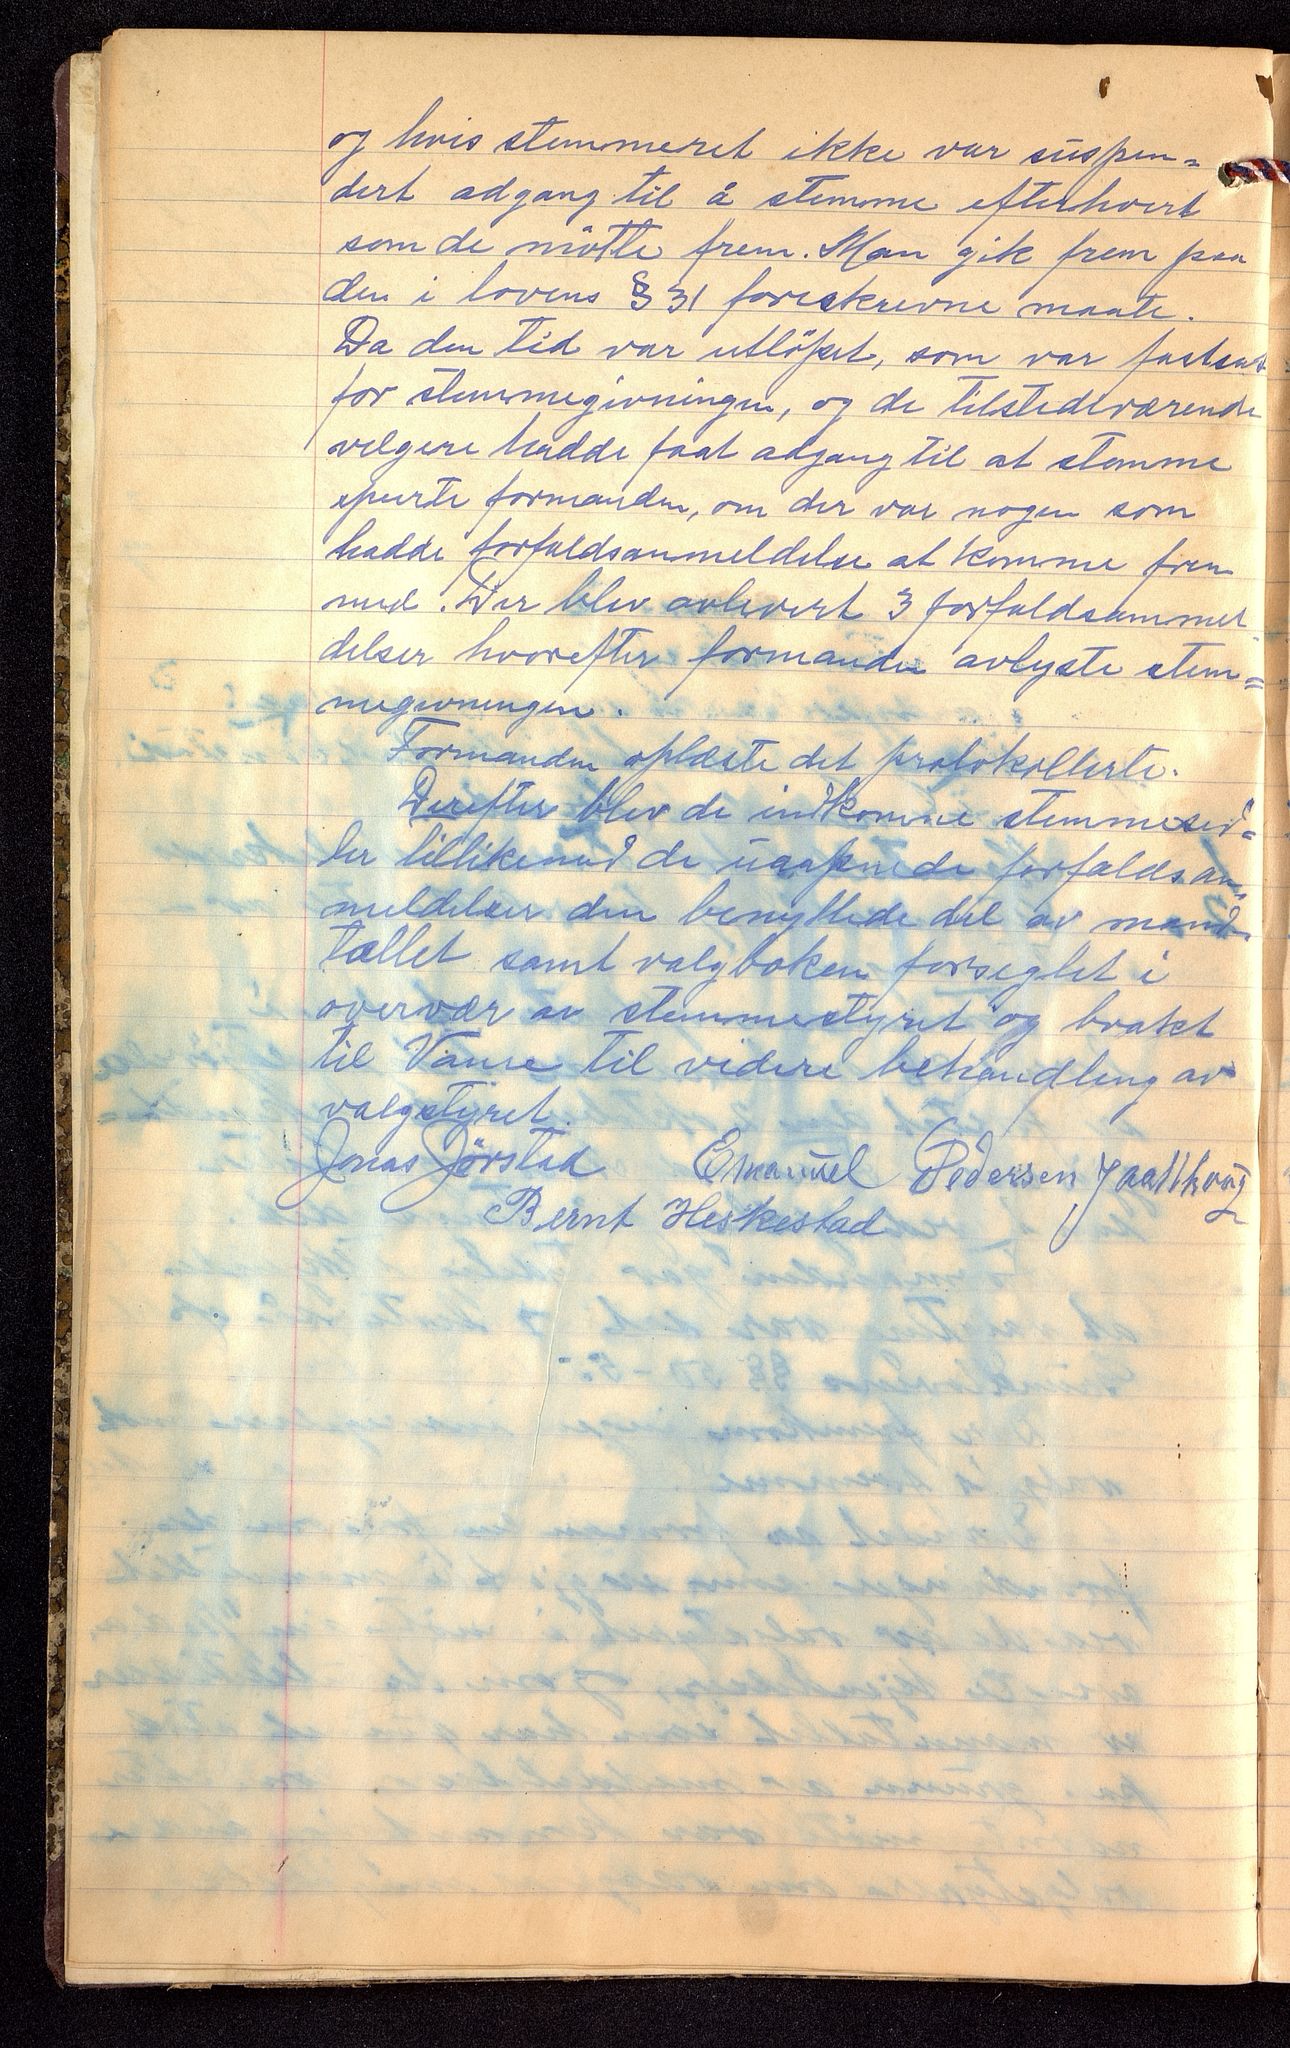 og hvis stemmeret ikke var suspen=
dert adgang til å stemme efterhvert
som de mötte frem. Man gik frem paa
den i lovens § 31 foreskrevne maate.
Da den tid var utlöpet, som var fastsat
for stemmegivningen, og de tilstedeværende
velgere hadde faat adgang til at stemme
spurte formanden, om der var nogen som
hadde forfaldsanmeldelse at komme frem
med. Der blev avlevert 3 forfaldsanmel
delser hvorefter formanden avlyste stem=
megivningen.
Formanden oplæste det protokollerte.
Derefter blev de indkomne stemmesed=
ler tillikemed de uaapnede forfaldsan=
meldelser den benyttede del av mand=
tallet samt valgboken forseglet i
overvær av stemmestyret og brakt
til Vanse til videre behandling av
valgstyret.
Jonas Jørstad Emanuel Pedersen
Bernt Heskestad